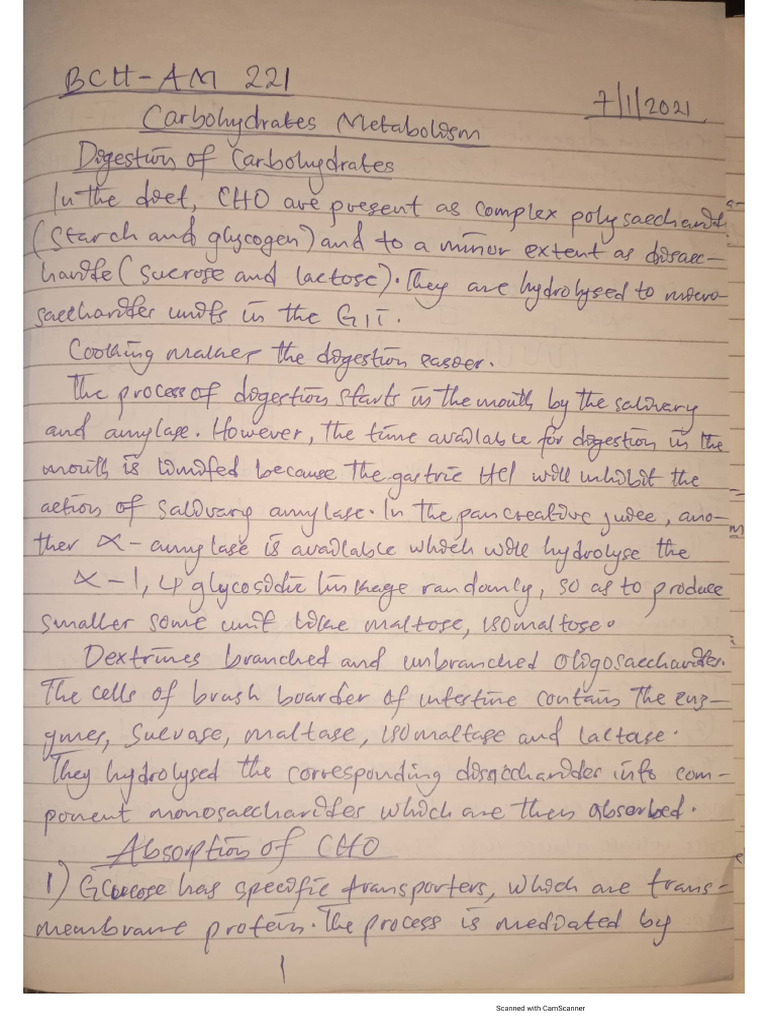 BCH-AM 221
7/1/2021
Carbohydrates Metabolism
Digestion of Carbohydrates
In the diet, CHO are present as complex polysaccharide
(starch and glycogen) and to a minor extent as disacc-
haride (sucrose and lactose). They are hydrolysed to mono-
saccharides units in the GIT.
Cooking makes the digestion easier.
The process of digestion starts in the mouth by the salivary
and amylase. However, the time available for digestion in the
mouth is limited because the gastric HCl will inhibit the
action of salivary amylase. In the pancreative juice, ano-
ther α-amylase is available which will hydrolyse the
α-1, 4 glycosidic linkage randomly, so as to produce
smaller some unit like maltose, isomaltose.
Dextrines branched and unbranched oligosaccharides.
The cells of brush boarder of intestine contain the enz-
ymes, Sucrase, maltase, isomaltase and lactase.
They hydrolysed the corresponding disaccharides into com-
ponent monosaccharides which are then absorbed.
Absorption of CHO
1) Glucose has specific transporters, which are trans-
membrane protein. The process is mediated by
1
Scanned with CamScanner